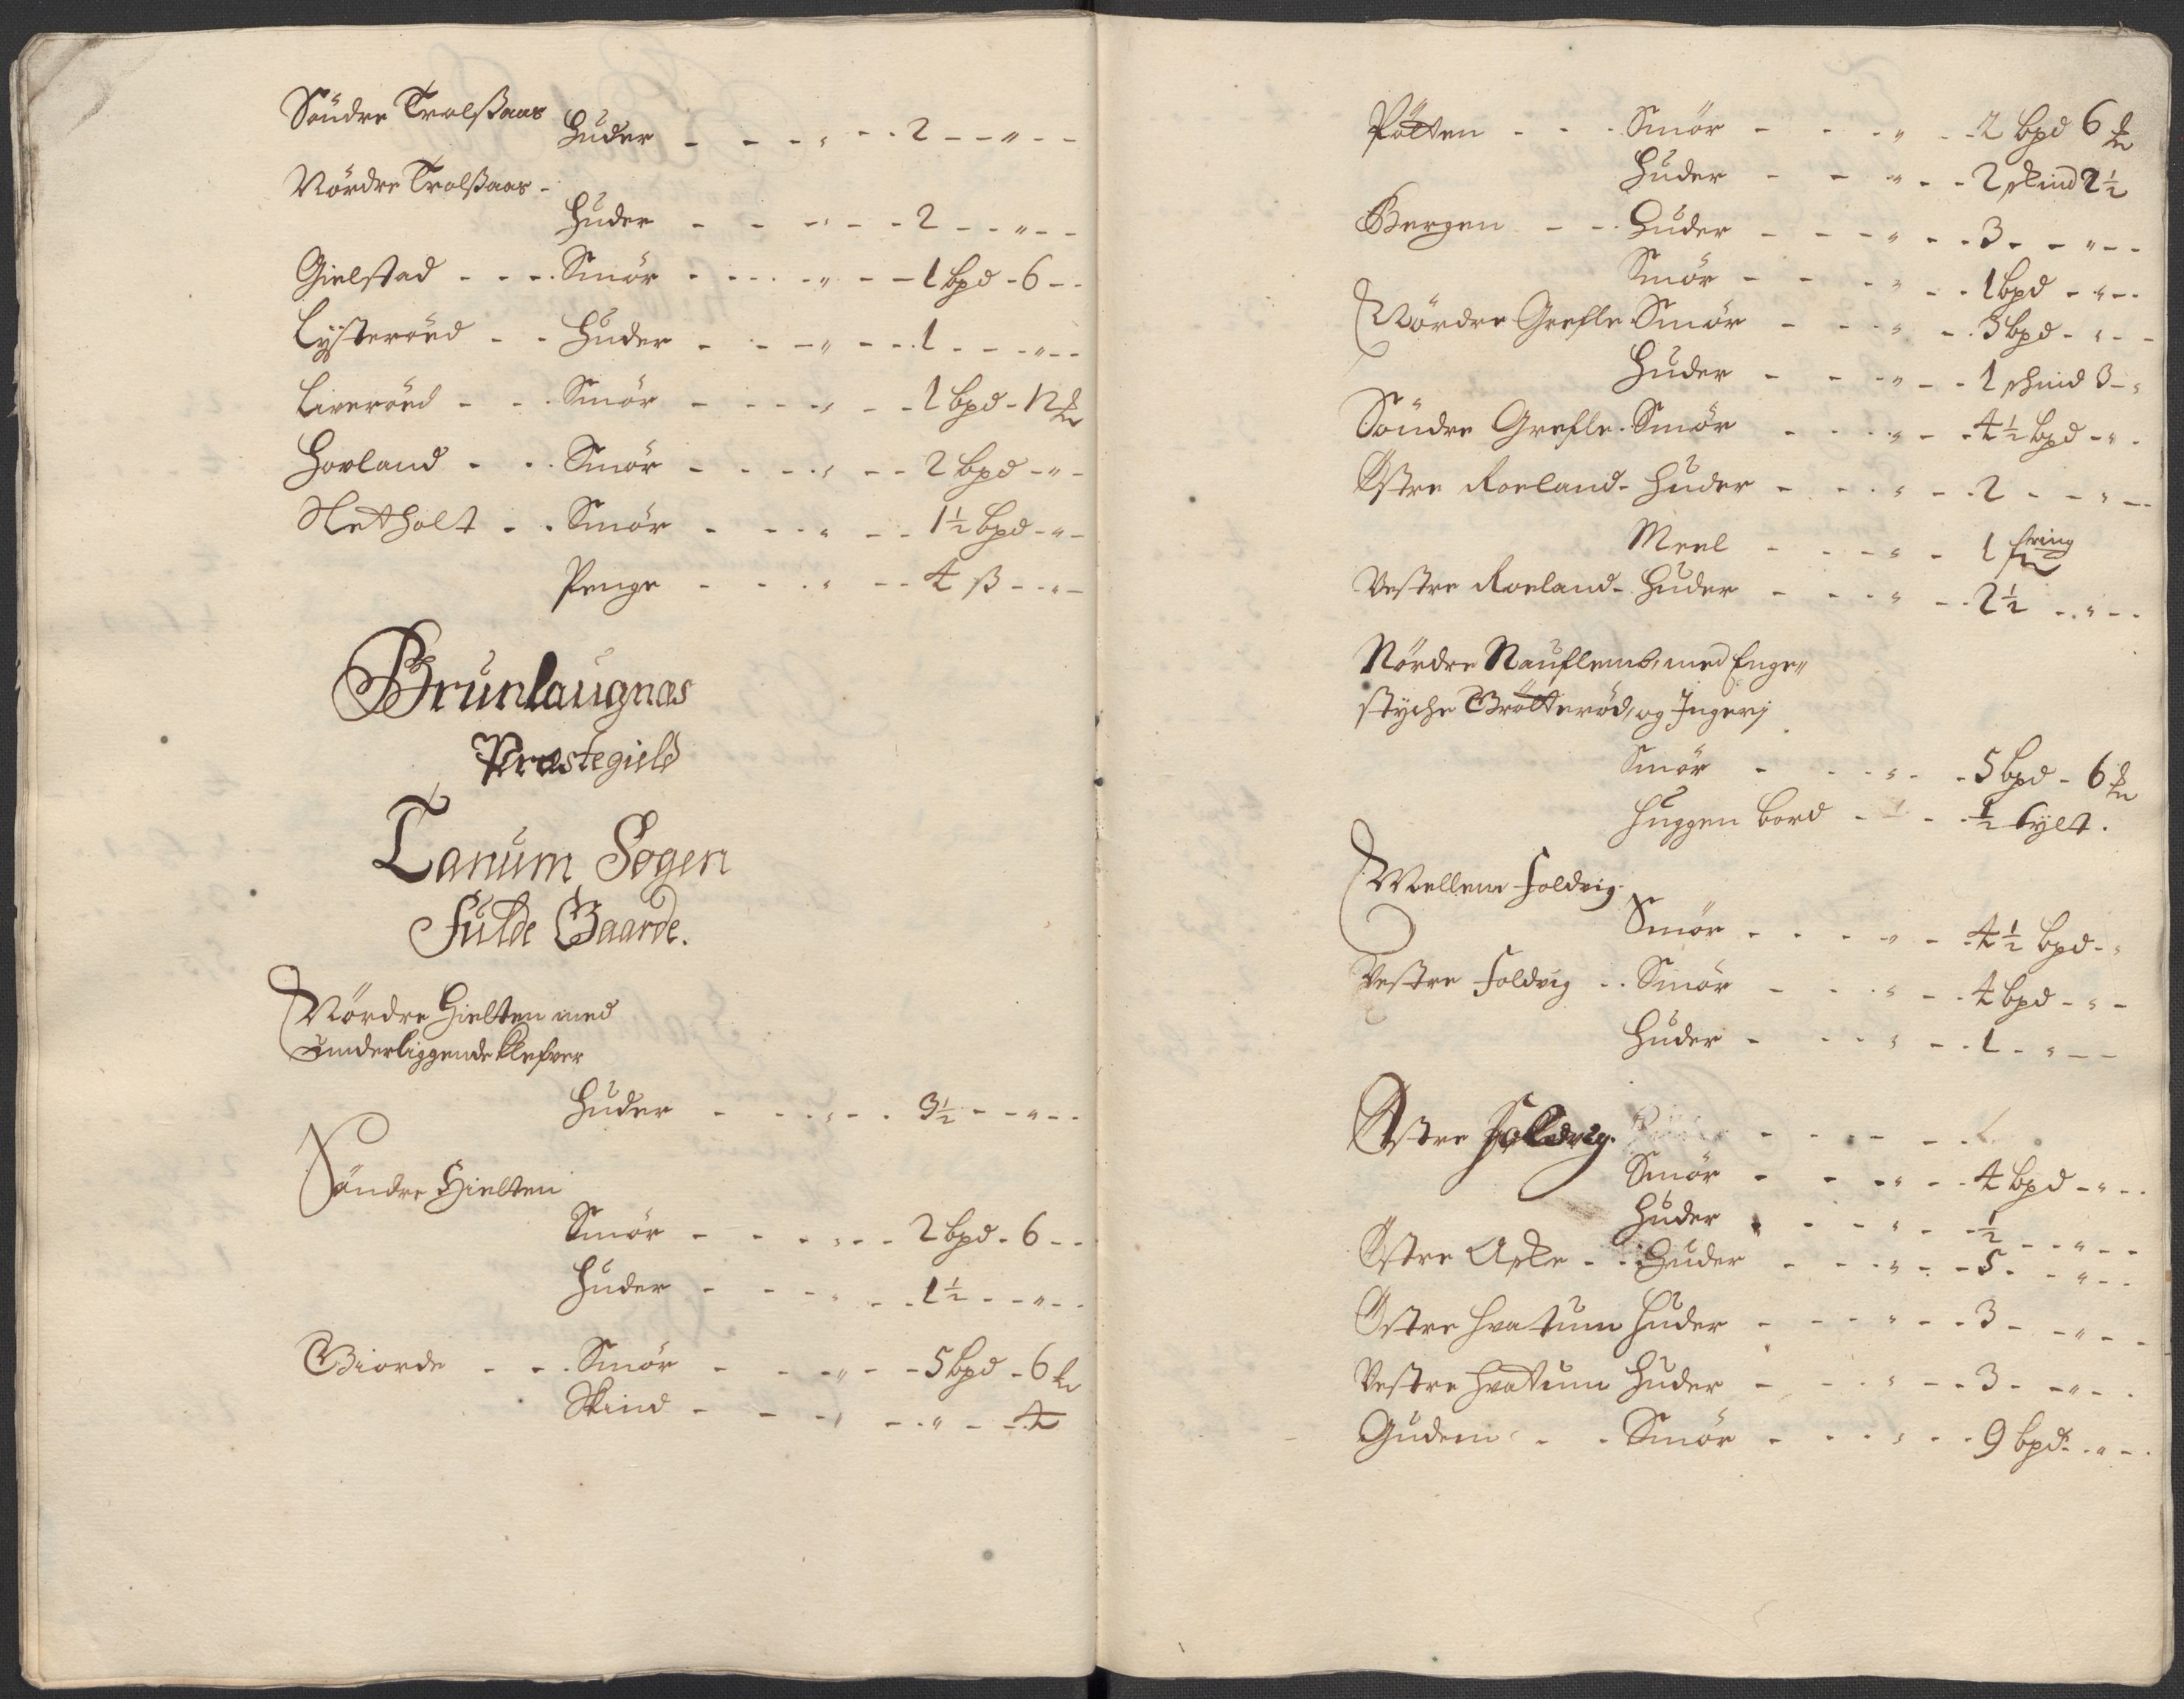 Söndre Trolßaas
Huder - - - " - - 2 - - " - -
Nördre Trolßaas -
Huder - - - " - - 2 - - " - -
Gielstad - - - Smör - - - - " - - 1 bpd - 6 - -
Lysteröed - - Huder - - - " - - 1 - - - " - -
Liveröed - - Smör - - - - " - - 1 bpd - 12 ℔
Hovland - - Smör - - - - " - - 2 bpd - " -
Netholt - - Smör - - - " - - 1½ bpd - " -
Penge - - - " - - 4 ß - - " -
Brunlaugnæs
Præstegield
Tanum Sogen
Fulde Gaarde.
Nördre Hielten med
underliggende Klefver
Huder - - - " - - 3½ - - " - -
Söndre Hielten
Smör - - - " - - 2 bpd - 6 - -
Huder - - - " - - 1½ - - " - -
Giorde - - Smör - - - " - - 5 bpd - 6 ℔
Skind - - - " - - " - - 4
Pötten - - - Smör - - - " - - 2 bpd 6 ℔
Huder - - " - - 2 skind 2½
Bergen - - Huder - - - " - - 3 - - " - -
Smör - - - " - - 1 bpd - " - -
Nördre Grefle Smör - - - " - - 3 bpd - " - -
Huder - - - " - - 1 skind 3 - "
Söndre Grefle Smör - - - " - - 4½ bpd - " -
Östre Roeland - Huder - - - " - - 2 - - " -
Meel - - - " - 1
Vestre Roeland - Huder - - - " - - 2½ - - " - -
Nördre Nauflemb, med Enge"
styche Brötteröd, og Ingerj
Smör - - - " - - 5 bpd - 6 ℔
Huggen bord - - - ½ tylt.
Mellem Foldvig
Smör - - - " - - 4½ bpd - "
Vestre Foldvig - - Smör - - - " - - 4 bpd - " -
Huder - - - " - - 1 - " - -
Östre Foldvig.
Smör - - - " - - 4 bpd - " - -
Huder - - - " - - ½ - - " - -
Östre Aske - - Huder - - - " - - 5 - - " - -
Östre Hvatum Huder - - - " - - 3 - - " - -
Vestre Hvatum Huder - - - " - - 3 - - " - -
Gudem - - Smör - - - " - - 9 bpd - " - -